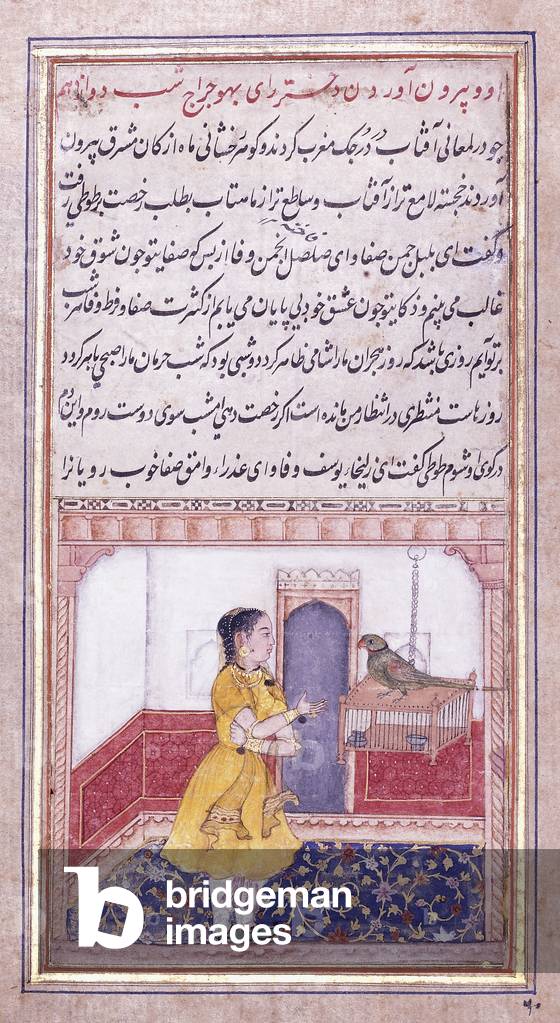 او و بیرون آوردن دختر رای بهوجراج شب دوازدهم
چو در لمعانی آفتاب در درجک مغرب کردند و کوهر خشانی ماه از کان مشرق بیرون
آوردند خجسته لامع تر از آفتاب و ساطع تر از ماهتاب بطلب رخصت بر طوطی رفت
و گفت ای بلبل چمن صفا و ای صلصل انجمن وفا از بس که صفا یتو جون شوق خود
غالب می بینم و ذکا یتو جون عشق خود بی پایان می یابم از کثرت صفا و فرط وفا هر شب
بر تو آیم روزی باشد که روز هجران ما را شامی ظاهر کردد و شبی بود که شب حرمان ما را صبحی باهر کردد
روزهاست منتظری در انتظار من مانده است اگر رخصت دهی امشب سوی دوست روم و این دم
در کوی او شوم طوطی گفت ای زلیخاء یوسف وفا و ای عذراء وامق صفا خوب رویا نرا
b
bridgeman
images